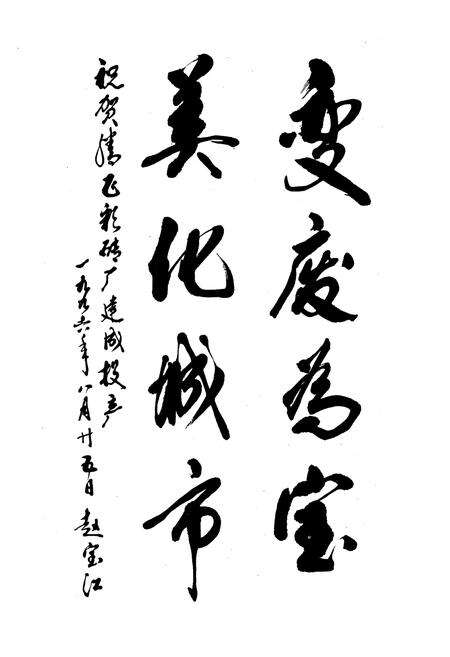 变废为宝
美化城市
祝贺腾飞彩砖厂建成投产
一九九六年八月廿五日 赵宝江